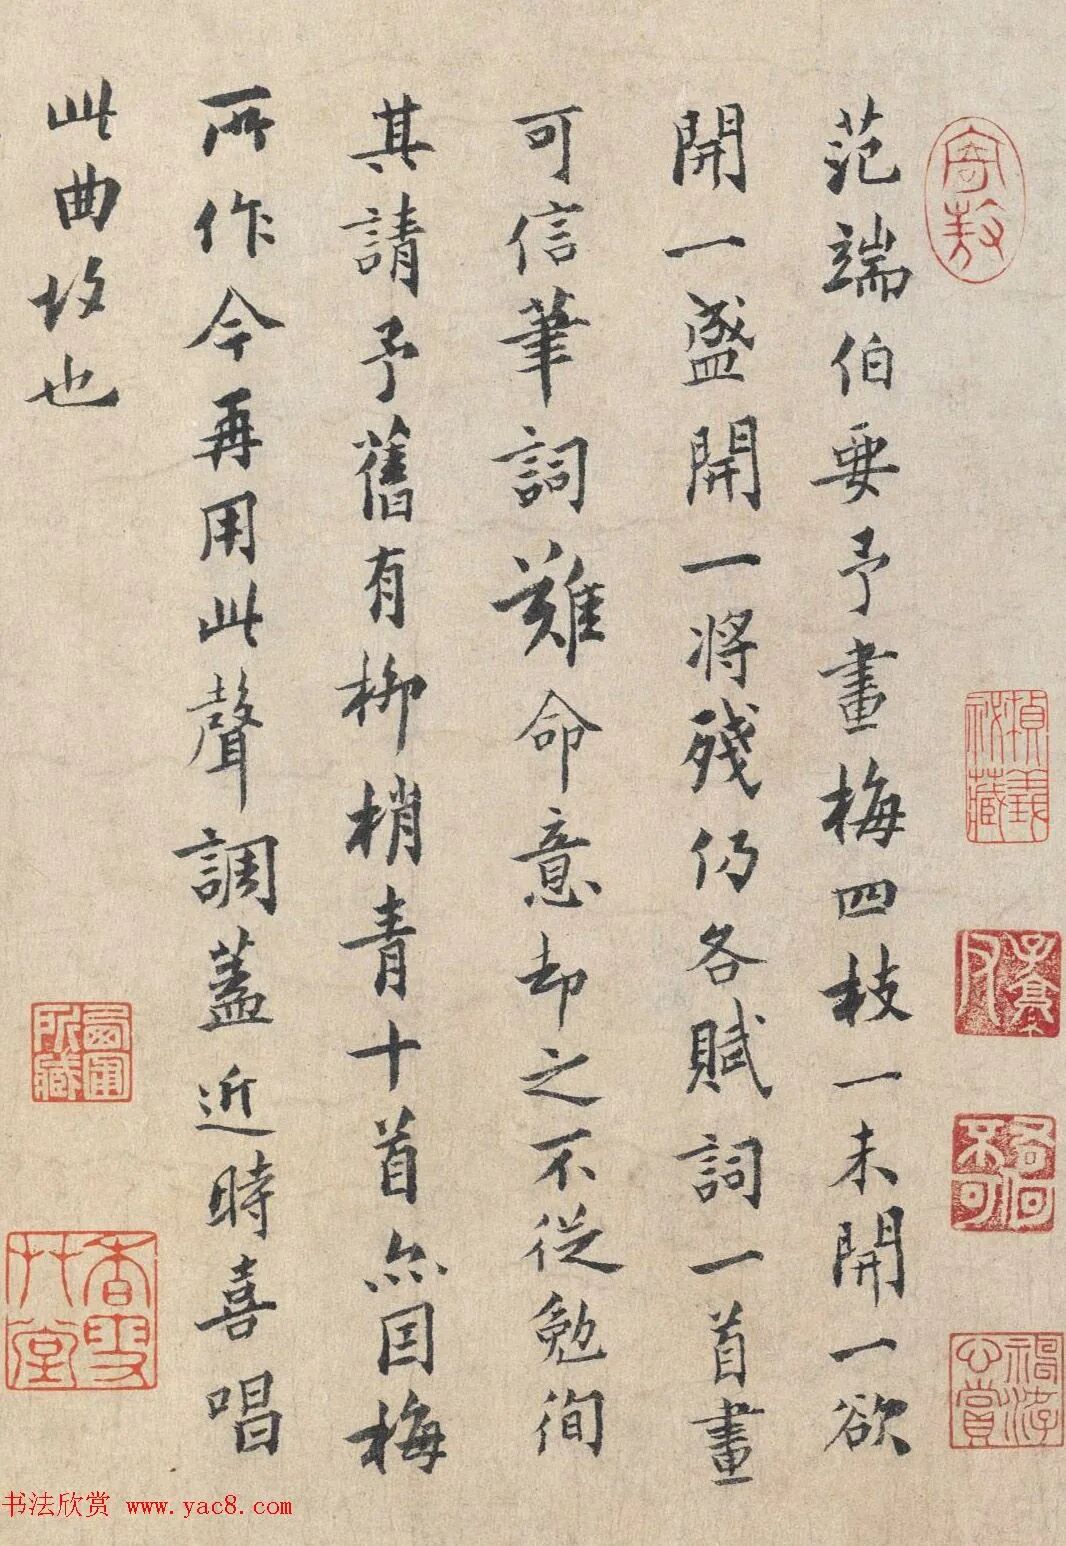 范端伯要予畫梅四枝一未開一欲
開一盛開一將殘仍各賦詞一首畫
可信筆詞難命意却之不從勉徇
其請予舊有柳梢青十首亦因梅
所作今再用此聲調蓋近時喜唱
此曲故也
香雪
草堂
书法欣赏 www.yac8.com